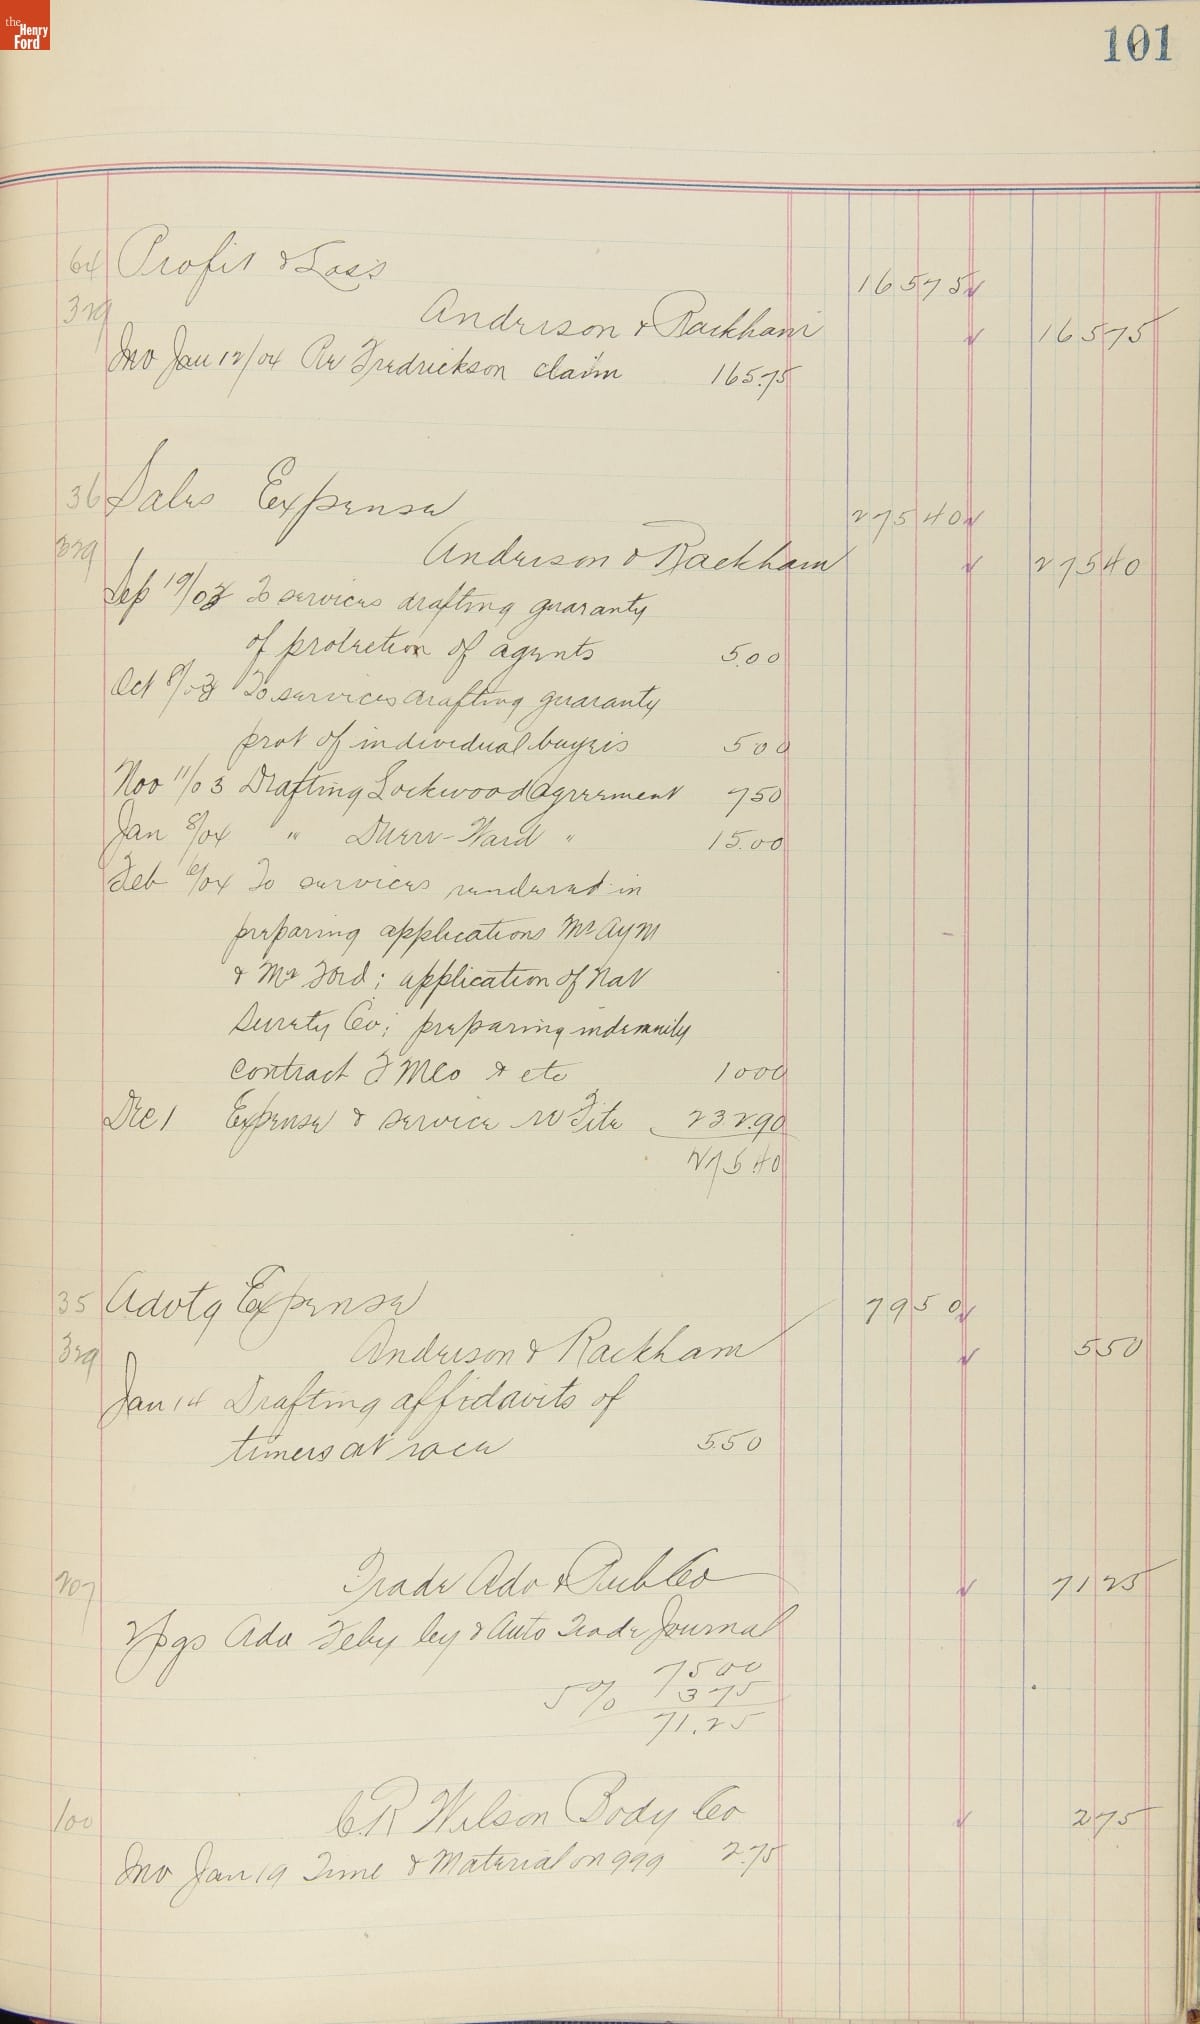 the Henry Ford
101
64 Profit & Loss 165 75
329 Anderson & Rackham 165 75
Inv Jan 12/04 Re Fredrickson claim 165.75
36 Sales Expense 275 40
329 Anderson & Rackham 275 40
Sep 19/03 To services drafting guaranty
of protection of agents 5.00
Oct 8/03 To services drafting guaranty
prot of individual buyers 5 00
Nov 11/03 Drafting Lockwood Agreement 7 50
Jan 8/04 " Duerr-Ward " 15.00
Feb 6/04 To services rendered in
preparing applications Mr
& Mr Ford; application of Nat
Surety Co; preparing indemnity
contract F M Co & etc 10 00
Dec 1 Expense & service re Fite 232.90
275 40
35 Advtg Expense 79 50
329 Anderson & Rackham 5 50
Jan 14 Drafting affidavits of
timers at race 5 50
207 Trade Adv & Pub Co 71 25
2 pgs Adv Feby Cy & Auto Trade Journal
75 00
5% 3 75
71.25
100 C.R Wilson Body Co 2 75
Inv Jan 19 Time & Material on 999 2.75